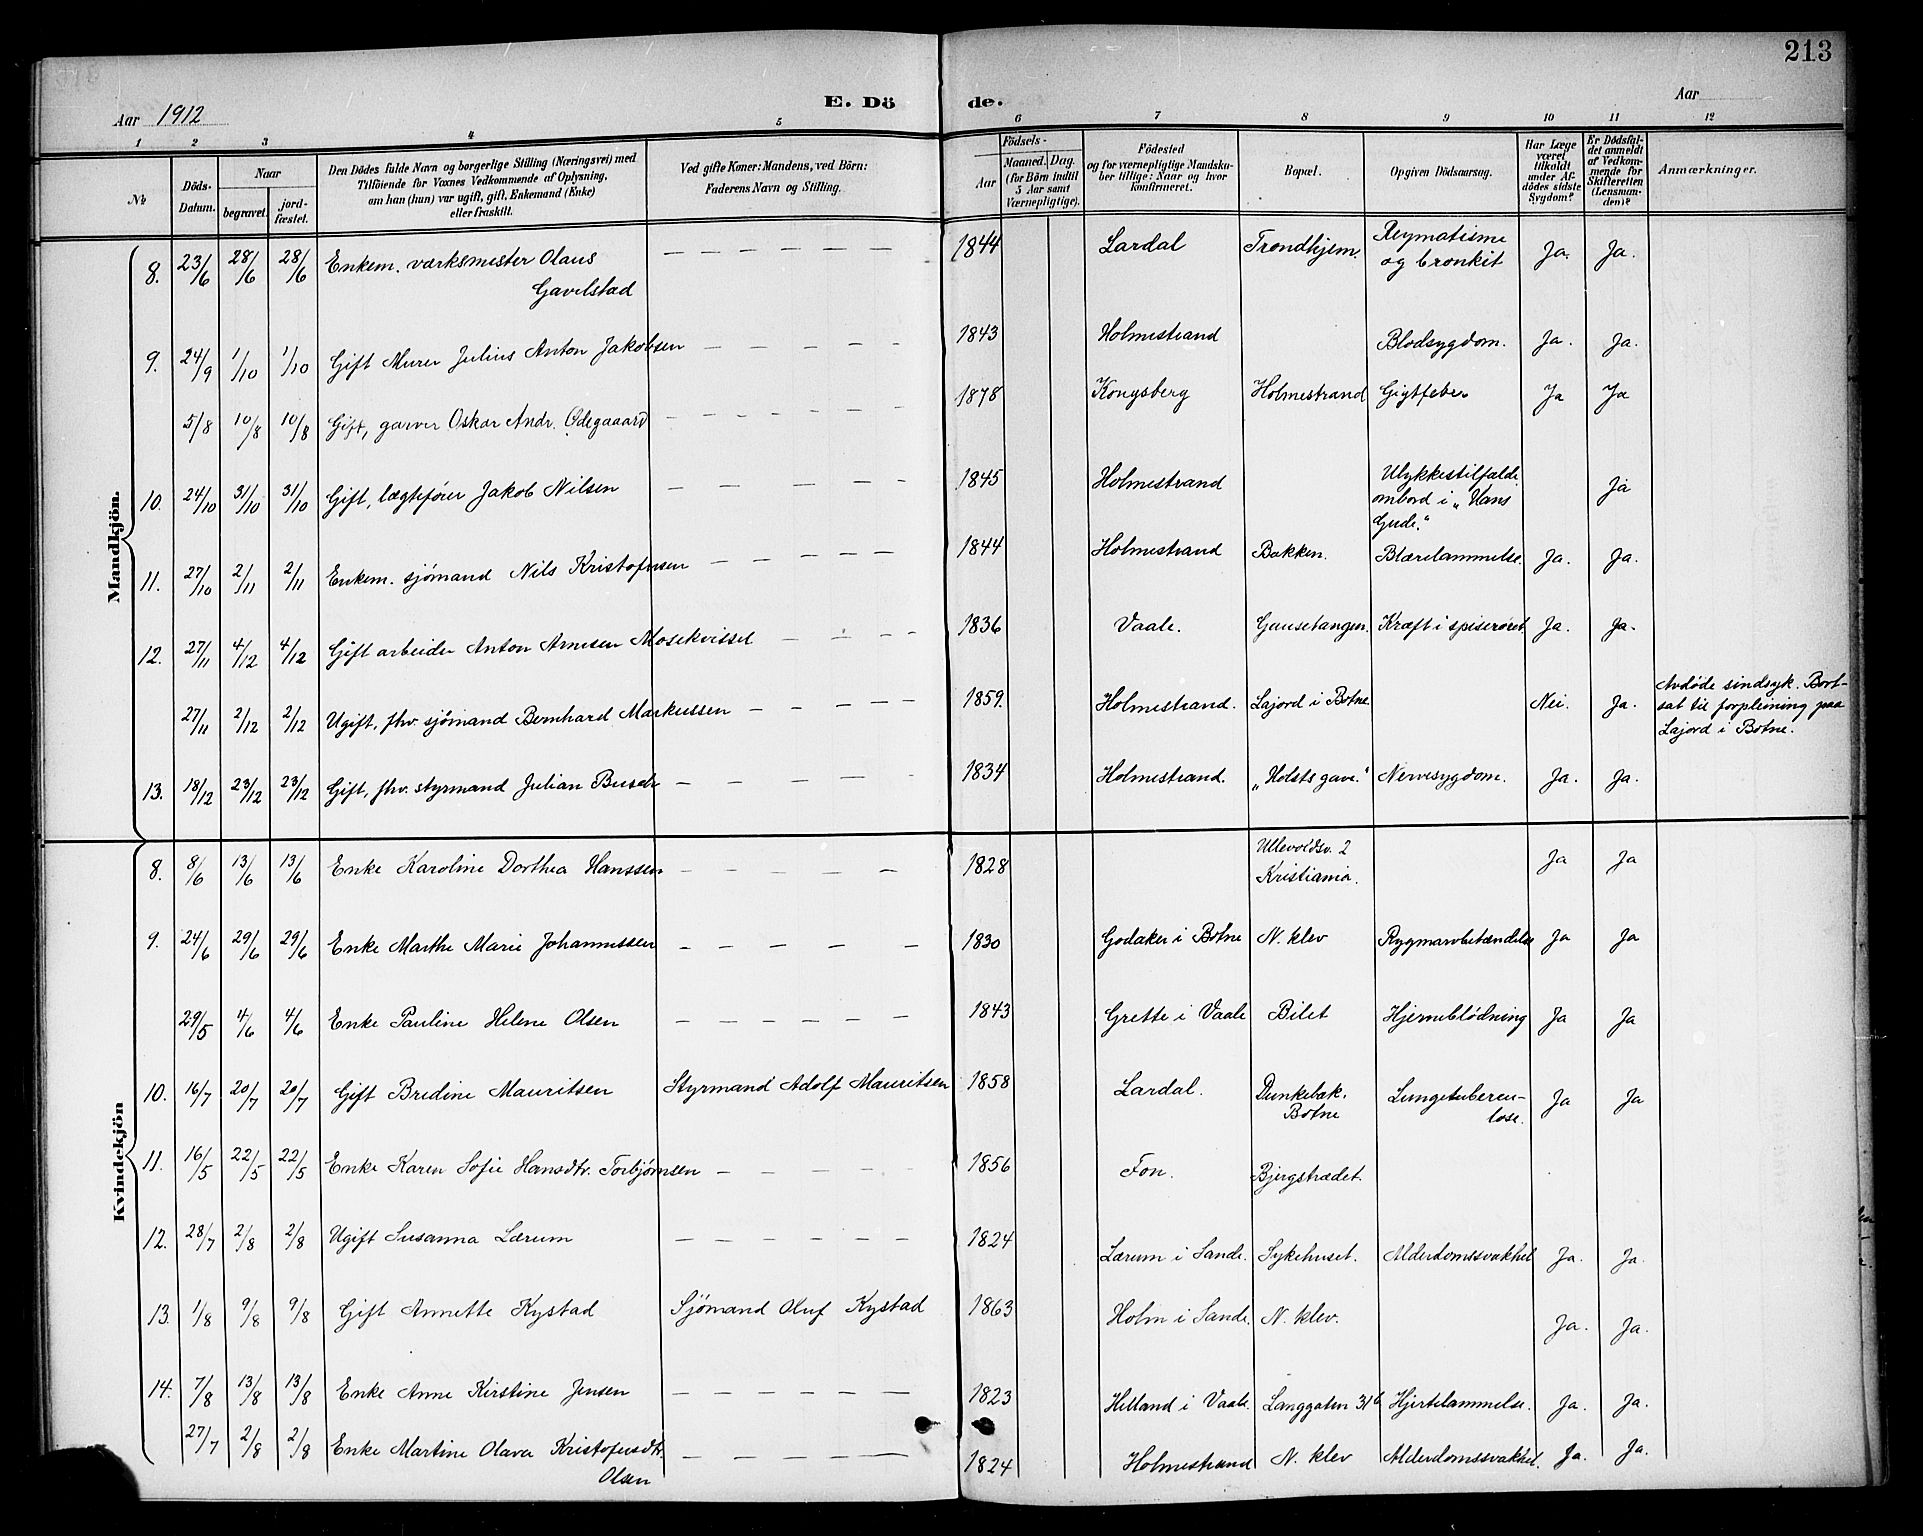 213
Aar 1912
E. Döde.
Aar
1 2 3 4 5 6 7 8 9 10 11 12
№
Döds-Datum.
Naar
begravet. jordfæstet.
Den Dödes fulde Navn og borgerlige Stilling (Næringsvei) med
Tilföiende for Voxnes Vedkommende af Oplysning,
om han (hun) var ugift, gift, Enkemand (Enke)
eller fraskilt.
Ved gifte Koner: Mandens, ved Börn:
Faderens Navn og Stilling.
Födsels-
Aar
Maaned. Dag.
(for Börn indtil
5 Aar samt
Værnepligtige).
Födested
og for værnepligtige Mandskaber tillige: Naar og hvor
konfirmeret.
Bopæl.
Opgiven Dödsaarsag.
Har Læge været tilkaldt under Afdödes sidste Sygdom?
Er Dödsfaldet anmeldt af Vedkommende for Skifteretten (Lensmanden)?
Anmærkninger.
Mandkjön.
8. 23/6 28/6 28/6 Enkem. værksmester Olaus Gavelstad — — — — — — 1844 Lardal Trondhjem. Reymatisme og bronkit Ja. Ja.
9. 24/9 1/10 1/10 Gift Murer Julius Anton Jakobsen — — — — — 1843 Holmestrand Blodsygdom. Ja. Ja.
5/8 10/8 10/8 Gift, garver Oskar Andr. Ødegaaard — — — — — — 1878 Kongsberg Holmestrand Gigtfeber Ja Ja
10. 24/10 31/10 31/10 Gift, lægtefører Jakob Nilsen — — — — — — 1845 Holmestrand Ulykkestilfælde ombord i „Hans Gude.“ Ja
11. 27/10 2/11 2/11 Enkem. sjømand Nils Kristofersen — — — — — 1844 Holmestrand Bakken. Blærelammelse. Ja. Ja.
12. 27/11 4/12 4/12 Gift arbeider Anton Arnesen Mosekvisset — — — — 1836 Vaale. Gausetangen. Kræft i spiserøret. Ja. Ja.
27/11 2/12 2/12 Ugift, fhv. sjømand Bernhard Markussen — — — — — 1859. Holmestrand. Lajord i Botne. Nei. Ja. Avdøde sindsyk. Bortsat til forpleining paa Lajord i Botne.
13. 18/12 23/12 23/12 Gift, fhv. styrmand Julian Busch — — — — — 1834 Holmestrand. „Holsts gave.“ Nervesygdom. Ja. Ja.
Kvindekjön
8. 8/6 13/6 13/6 Enke Karoline Dorthea Hanssen — — — — — 1828 Ullevoldsv. 2 Kristiania. Ja Ja
9. 24/6 29/6 29/6 Enke Marthe Marie Johannessen — — — — — 1830 Godaker i Botne N. klev Rygmarvbetændelse Ja Ja
29/5 4/6 4/6 Enke Pauline Helene Olsen — — — — — — 1843 Grette i Vaale Bilet Hjerneblödning Ja Ja
10. 16/7 20/7 20/7 Gift Bredine Mauritsen Styrmand Adolf Mauritsen 1858 Lardal. Dunkebæk. Botne Lungetuberculose. Ja Ja
11. 16/5 22/5 22/5 Enke Karen Sofie Hansdtr. Torbjørnsen — — — — — 1856 Fon. Bjergstrædet.
12. 28/7 2/8 2/8 Ugift Susanna Lærum — — — — — — 1824 Lærum i Sande. Sykehuset. Alderdomssvakhet Ja. Ja.
13. 1/8 9/8 9/8 Gift Annette Kystad Sjömand Oluf Kystad 1863 Holm i Sande. N. klev. Ja. Ja.
14. 7/8 13/8 13/8 Enke Anne Kirstine Jensen — — — — — — 1823 Helland i Vaale. Langgaten 31b Hjertelammelse. Ja. Ja.
27/7 2/8 2/8 Enke Martine Olava Kristofersdtr. Olsen — — — — — 1824 Holmestrand N. klev Alderdomssvakhet. Ja. Ja.